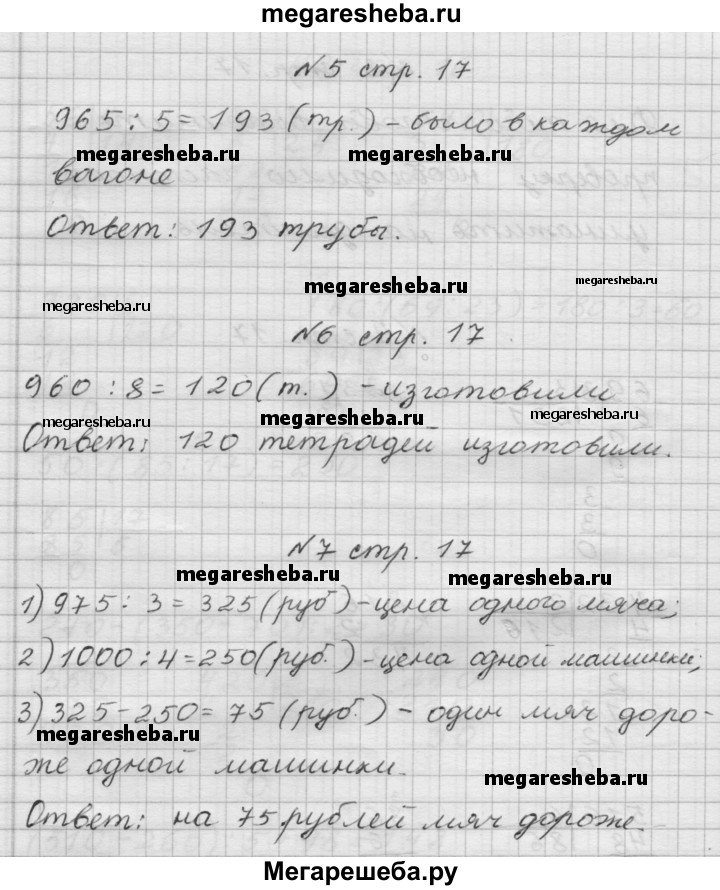 megaresheba.ru
№5 стр. 17
965 : 5 = 193 (тр.) - было в каждом
megaresheba.ru megaresheba.ru
вагоне
Ответ: 193 трубы.
megaresheba.ru megaresheba.ru
megaresheba.ru
№6 стр. 17
960 : 8 = 120 (т.) - изготовили
megaresheba.ru megaresheba.ru megaresheba.ru
Ответ: 120 тетрадей изготовили.
№7 стр. 17
megaresheba.ru megaresheba.ru
1) 975 : 3 = 325 (руб) - цена одного мяча;
2) 1000 : 4 = 250 (руб.) - цена одной машинки;
3) 325 - 250 = 75 (руб.) - один мяч доро-
megaresheba.ru
же одной машинки.
megaresheba.ru
Ответ: на 75 рублей мяч дороже.
Мегарешеба.ру